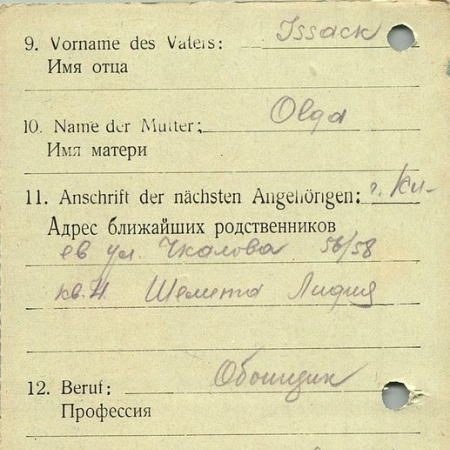 9. Vorname des Vaters: Issack
Имя отца
10. Name der Mutter: Olga
Имя матери
11. Anschrift der nächsten Angehörigen: г. Ки-
Адрес ближайших родственников
ев ул. Чкалова 56/58
кв. Шелета Лидия
12. Beruf: Обоищик
Профессия